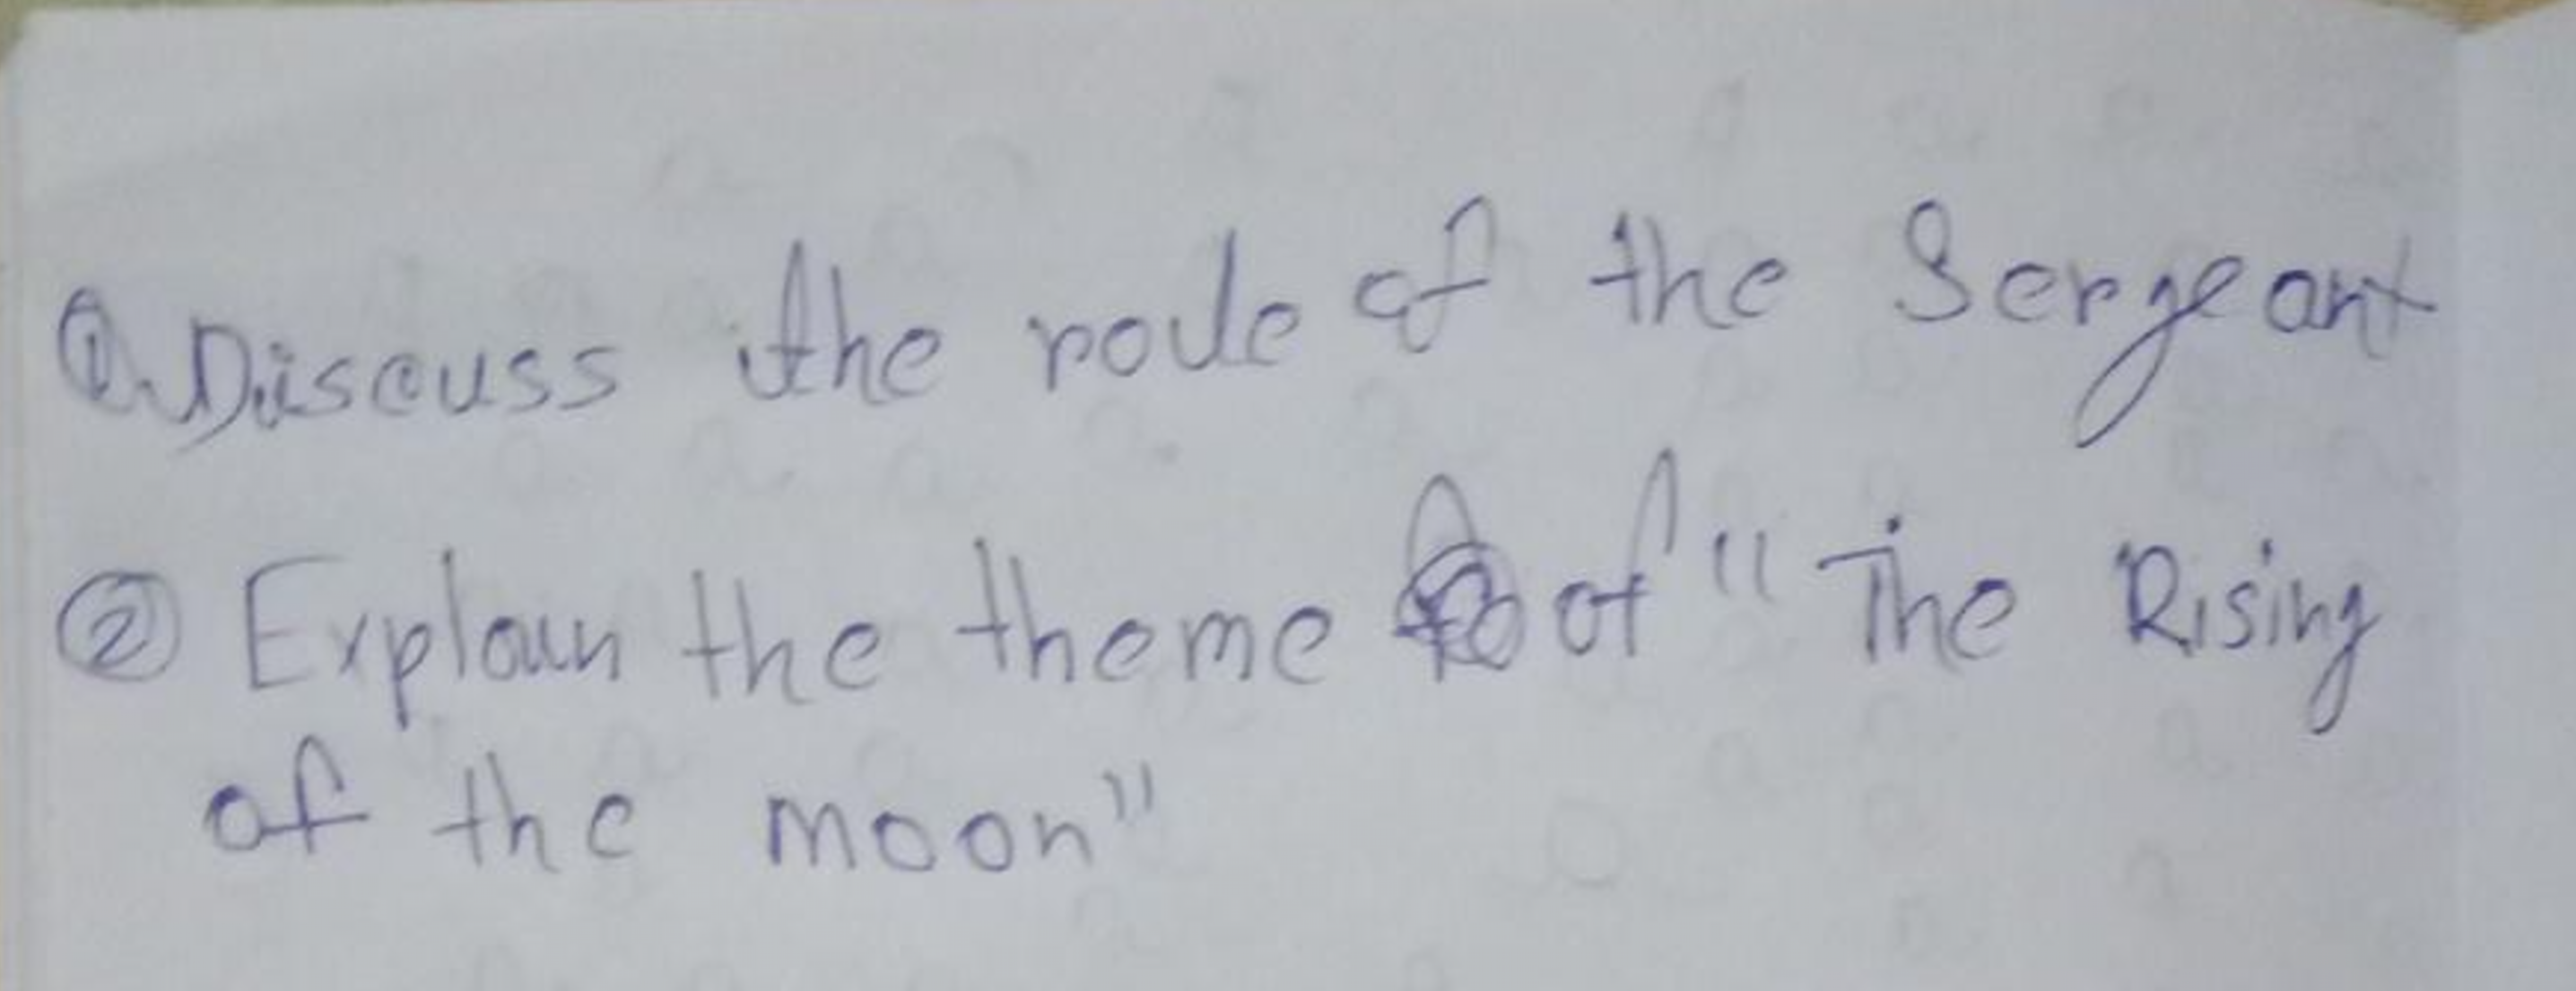 ① Discuss the role of the Sergeant
② Explain the theme of "The Rising
of the moon"